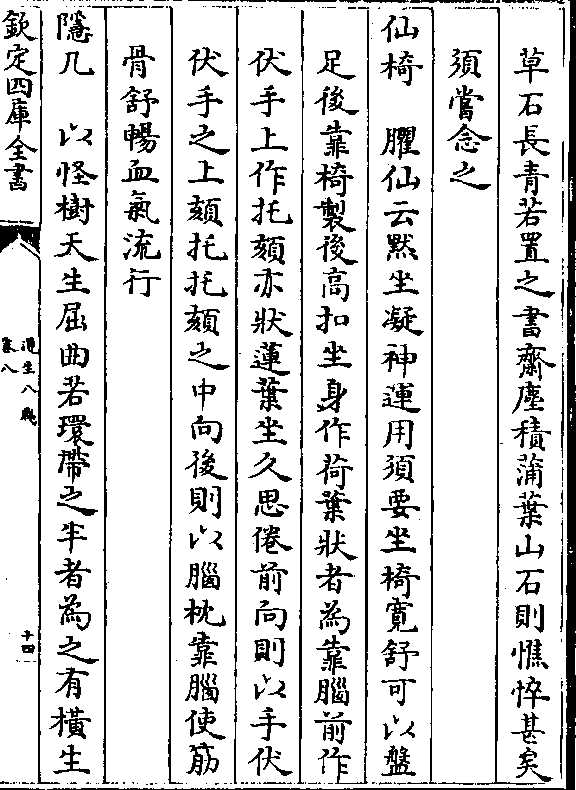 草石長青若置之書齋塵積蒲葉山石則憔悴甚矣
須嘗念之
仙椅　臞仙云黙坐凝神運用須要坐椅寛舒可以盤
足後靠椅製後高扣坐身作荷葉狀者為靠腦前作
伏手上作托頦亦狀蓮葉坐久思倦前向則以手伏
伏手之上頦托托頦之中向後則以腦枕靠腦使筋
骨舒暢血氣流行
隱几　以怪樹天生屈曲若環帶之半者為之有橫生
欽定四庫全書
遵生八牋
卷八
十四